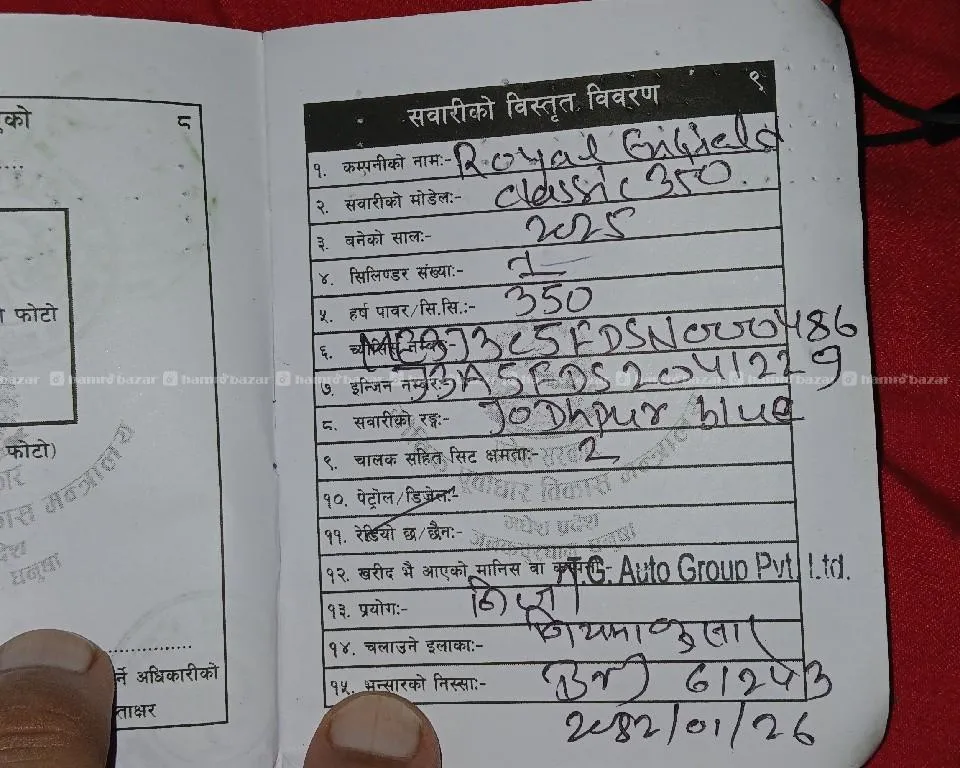 ुको ८
फोटो
फोटो)
अधिकारीको
सवारीको विस्तृत विवरण ९
१. कम्पनीको नाम:- Royal Enfield
२. सवारीको मोडेल:- classic 350.
३. बनेको साल:- 2025
४. सिलिण्डर संख्या:- 1
५. हर्ष पावर/सि.सि.:- 350
६. च्यासिस नम्बर:-
७. इन्जिन नम्बर:-
८. सवारीको रङ्ग:- Jodhpur blue
९. चालक सहित सिट क्षमता:- 2
१०. पेट्रोल/डिजेल:-
११. रेडियो छ/छैन:-
१२. खरीद भै आएको मानिस वा कम्पनी:- T.G. Auto Group Pvt. Ltd.
१३. प्रयोग:- निजी
१४. चलाउने इलाका:- नियमानुसार
१५. भन्सारको निस्सा:-
2082/01/26
पूर्वाधार विकास मन्त्रालय
मधेश प्रदेश
hamrobazar hamrobazar hamrobazar hamrobazar hamrobazar hamrobazar hamrobazar hamrobazar